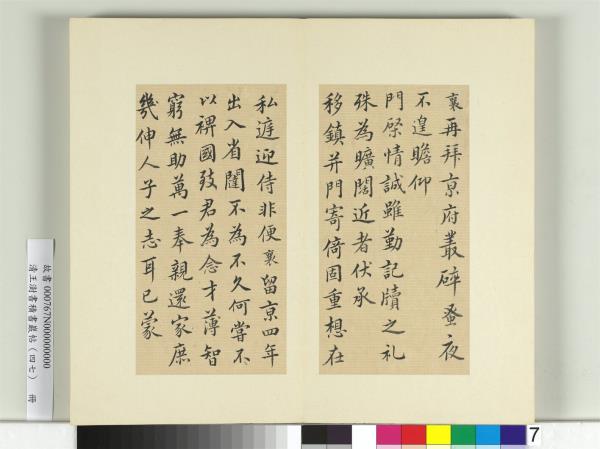 襄再拜京府叢碎蚤夜
不遑瞻仰
門屏情誠雖勤記牘之礼
殊為曠闊近者伏承
移鎮并門寄倚固重想在
私庭迎侍非便襄留京四年
出入省闥不為不久何嘗不
以裨國致君為念才薄智
窮無助萬一奉親還家庶
幾伸人子之志耳已蒙
故書 000767N000000000
清王澍書積書巖帖(四七) 冊
7